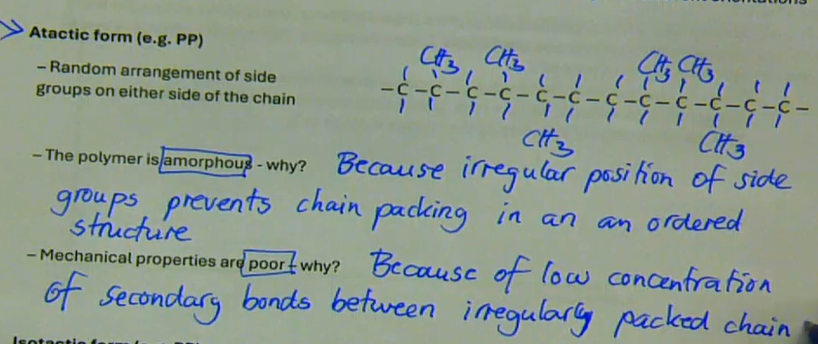 orientations
Atactic form (e.g. PP)
– Random arrangement of side
groups on either side of the chain
CH3 CH3 CH3 CH3
–C–C–C–C–C–C–C–C–C–C–C–C–
CH3 CH3
– The polymer is amorphous - why? Because irregular position of side
groups prevents chain packing in an an ordered
structure
– Mechanical properties are poor – why? Because of low concentration
of secondary bonds between irregularly packed chain